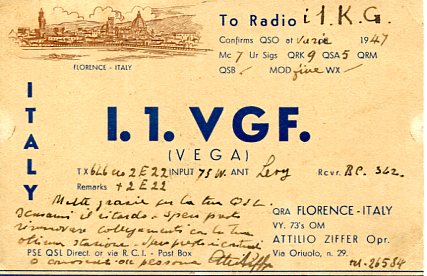 To Radio i1.K.G.
Confirms QSO at varie 1947
Mc 7 Ur Sigs QRK 9 QSA 5 QRM
QSB - MOD fine WX -
FLORENCE - ITALY
ITALY
I.1.VGF.
(VEGA)
TX 6L6 2E22 INPUT 75 W. ANT Levy Rcvr. RC. 342.
Remarks + 2E22
Molte grazie per la tua QSL.
Scusami il ritardo. Spero presto
rinnovare collegamenti con la tua
ottima stazione. Spero presto
o conoscerti di persona
QRA FLORENCE-ITALY
VY. 73's OM
ATTILIO ZIFFER Opr.
Via Oriuolo, n. 29.
PSE QSL Direct. or via R. C. I. - Post Box
tel. 26584